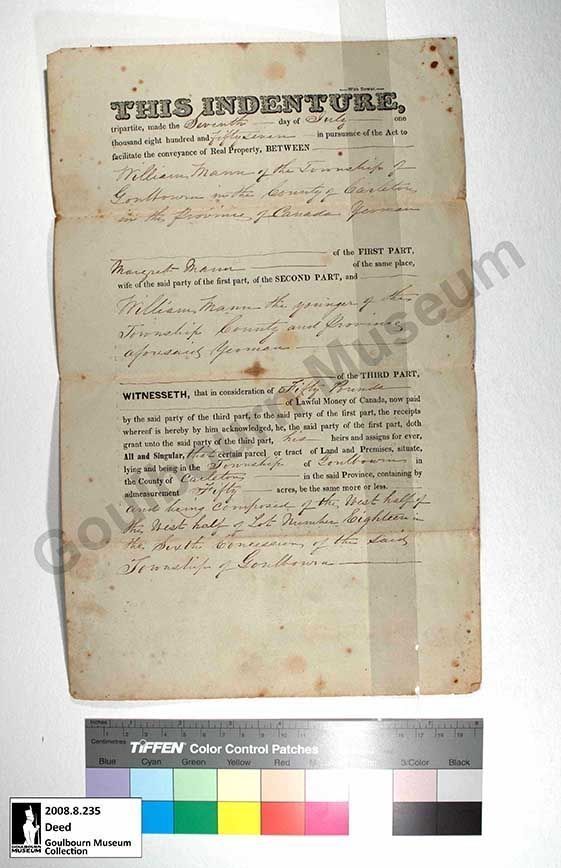 With Dower.
THIS INDENTURE,
tripartite, made the Seventh day of July one
thousand eight hundred and fifty seven in pursuance of the Act to
facilitate the conveyance of Real Property, BETWEEN
William Mann of the Township of
Goulbourn in the County of Carleton
in the Province of Canada Yeoman
of the FIRST PART,
Margret Mann of the same place,
wife of the said party of the first part, of the SECOND PART, and
William Mann the younger of the
Township County and Province
aforesaid Yeoman
of the THIRD PART,
WITNESSETH, that in consideration of Fifty Pounds
of Lawful Money of Canada, now paid
by the said party of the third part, to the said party of the first part, the receipts
whereof is hereby by him acknowledged, he, the said party of the first part, doth
grant unto the said party of the third part, his heirs and assigns for ever,
All and Singular, that certain parcel or tract of Land and Premises, situate,
lying and being in the Township of Goulbourn in
the County of Carleton in the said Province, containing by
admeasurement Fifty acres, be the same more or less.
and being composed of the West half of
the West half of Lot Number Eighteen in
the Sixth Concession of the said
Township of Goulbourn
Goulbourn Museum
Inches 1 2 3 4 5 6 7 8
Centimetres 1 2 3 4 5 6 7 8 9 10 11 12 13 14 15 16 17 18 19
TIFFEN Color Control Patches
Blue Cyan Green Yellow Red Magenta 3/Color Black
2008.8.235
Deed
Goulbourn Museum
Collection
GOULBOURN
MUSEUM